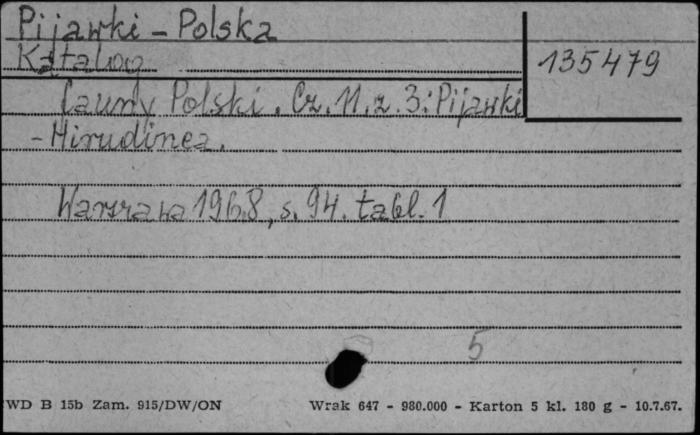 Pijawki - Polska
Katalog
135479
fauny Polski. Cz. 11. z. 3: Pijawki
- Hirudinea.
Warszawa 1968, s. 94. tabl. 1
5
WD B 15b Zam. 915/DW/ON Wrak 647 - 980.000 - Karton 5 kl. 180 g - 10.7.67.